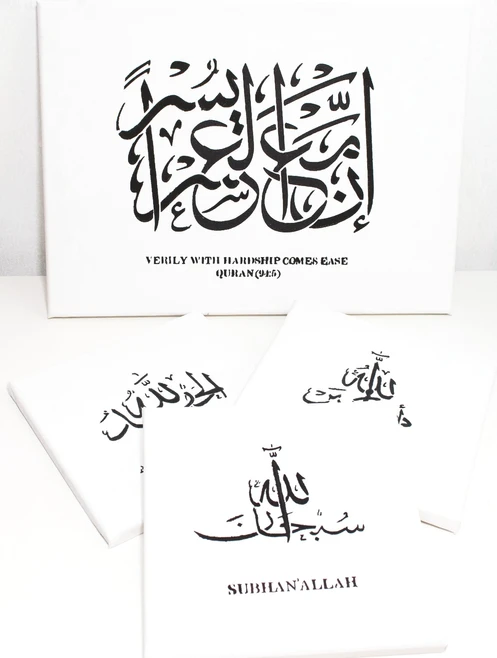 إن مع العسر يسرا
VERILY WITH HARDSHIP COMES EASE
QURAN (94:5)
الله
سبحان الله
SUBHAN'ALLAH